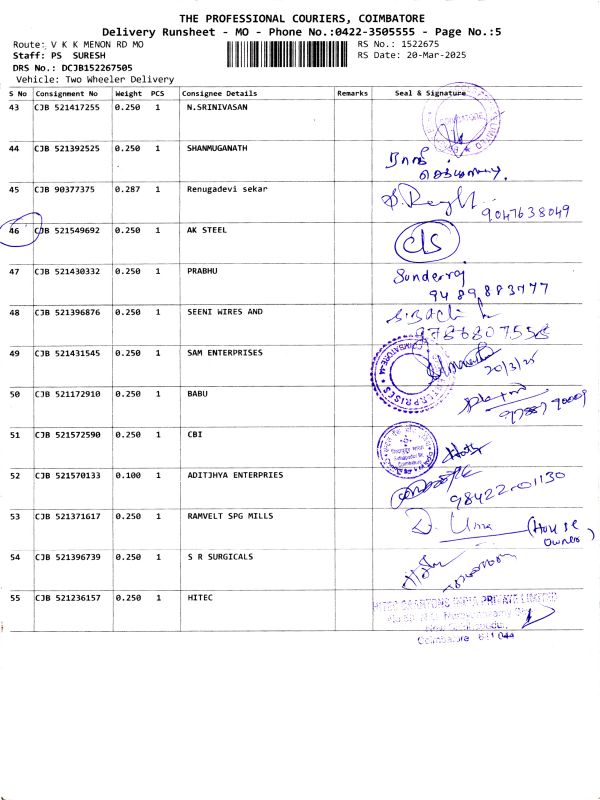 THE PROFESSIONAL COURIERS, COIMBATORE
Delivery Runsheet - MO - Phone No.:0422-3505555 - Page No.:5
Route: V K K MENON RD MO RS No.: 1522675
Staff: PS SURESH RS Date: 20-Mar-2025
DRS No.: DCJB152267505
Vehicle: Two Wheeler Delivery
S No Consignment No Weight PCS Consignee Details Remarks Seal & Signature
43 CJB 521417255 0.250 1 N.SRINIVASAN
44 CJB 521392525 0.250 1 SHANMUGANATH
45 CJB 90377375 0.287 1 Renugadevi sekar
9047638049
46 CJB 521549692 0.250 1 AK STEEL
47 CJB 521430332 0.250 1 PRABHU Sunderraj
9489883777
48 CJB 521396876 0.250 1 SEENI WIRES AND
9786807558
49 CJB 521431545 0.250 1 SAM ENTERPRISES
20/3/25
50 CJB 521172910 0.250 1 BABU
51 CJB 521572590 0.250 1 CBI
52 CJB 521570133 0.100 1 ADITJHYA ENTERPRIES
98422-01130
53 CJB 521371617 0.250 1 RAMVELT SPG MILLS D. Uma (House
owner)
54 CJB 521396739 0.250 1 S R SURGICALS
55 CJB 521236157 0.250 1 HITEC
PRIVATE LIMITED
Coimbatore 641 044